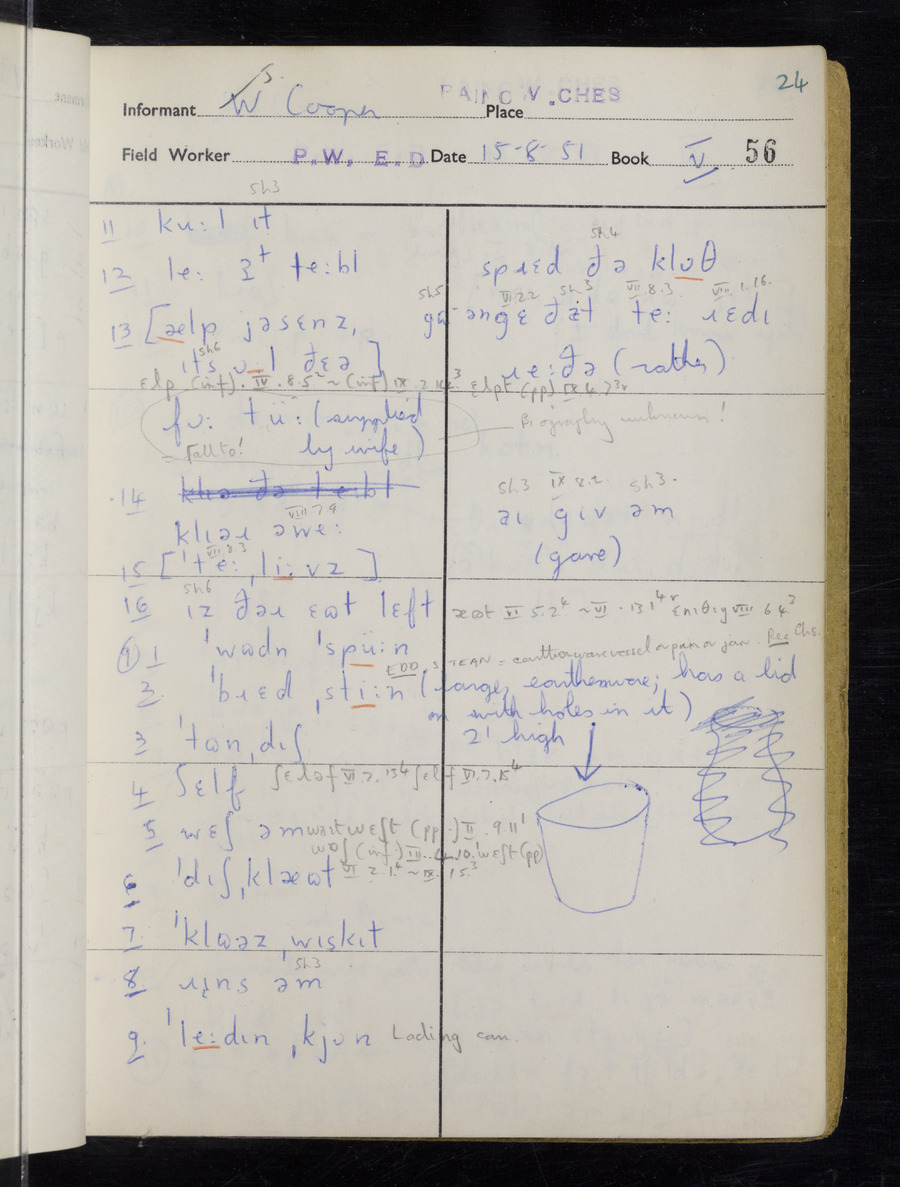 24
s.
Informant W Cooper Place RAINOW.CHES
Field Worker P.W. E.D. Date 15-8-51 Book V 56
sh3
11 ku:l ɪt
sh4
12 le: te:bl
spɹɛd ðə klʊθ
sh5 VI 2.2 sh3 VII.8.3 VIII.1.16.
13 [ɛəlp jəsɛnz,
ðat te: ɹɛdɪ
sh6
ɪts ʊl ðɛə]
ɹe:ðə (rather)
ɛlp (inf). IV .8.5² ~ (inf) IX ɛlpt (pp)
fɔ: tü: (supplied
= Fall to! by wife)
Biography unknown!
14 klɪə ðə te:bl
VIII 7 9
klɪəɹ əwe:
sh3 IX 8.2 sh3.
aɪ gɪv əm
(gave)
VII 8 3
15 [ˈte: ˌli:vz]
sh6
16 ɪz ðəɹ ɛʊt lɛft
æʊt VI 5.2⁴ ~ VI .13 1⁴ ɛnɪθɪŋ VIII 6 4²
9 1 ˈwʊdn ˈspü:n
EDD STEAN = earthenware vessel or pan or jar. Rec Chs.
2. ˈbɹɛd ˌsti:n (large, earthenware; has a lid
on with holes in it)
3 ˈtʊn ˌdɪʃ
2' high
4 ʃɛlf ʃɛləf VI 2. 13⁴ ʃɛlf VI.7.15⁴
5 wɛʃ əm wɛʃt (pp.) II .9 11¹
wɒʃ (inf) III. 4.10.¹ wɛʃt (pp)
6 ˈdɪʃˌklæʊt VI 2.1.⁴ ~ IX. 1 5.³
7 ˈklʊəz ˌwɪskɪt
sh3
8. ɹɪns əm
9. ˈle:dɪn ˌkjʊn Lading can.